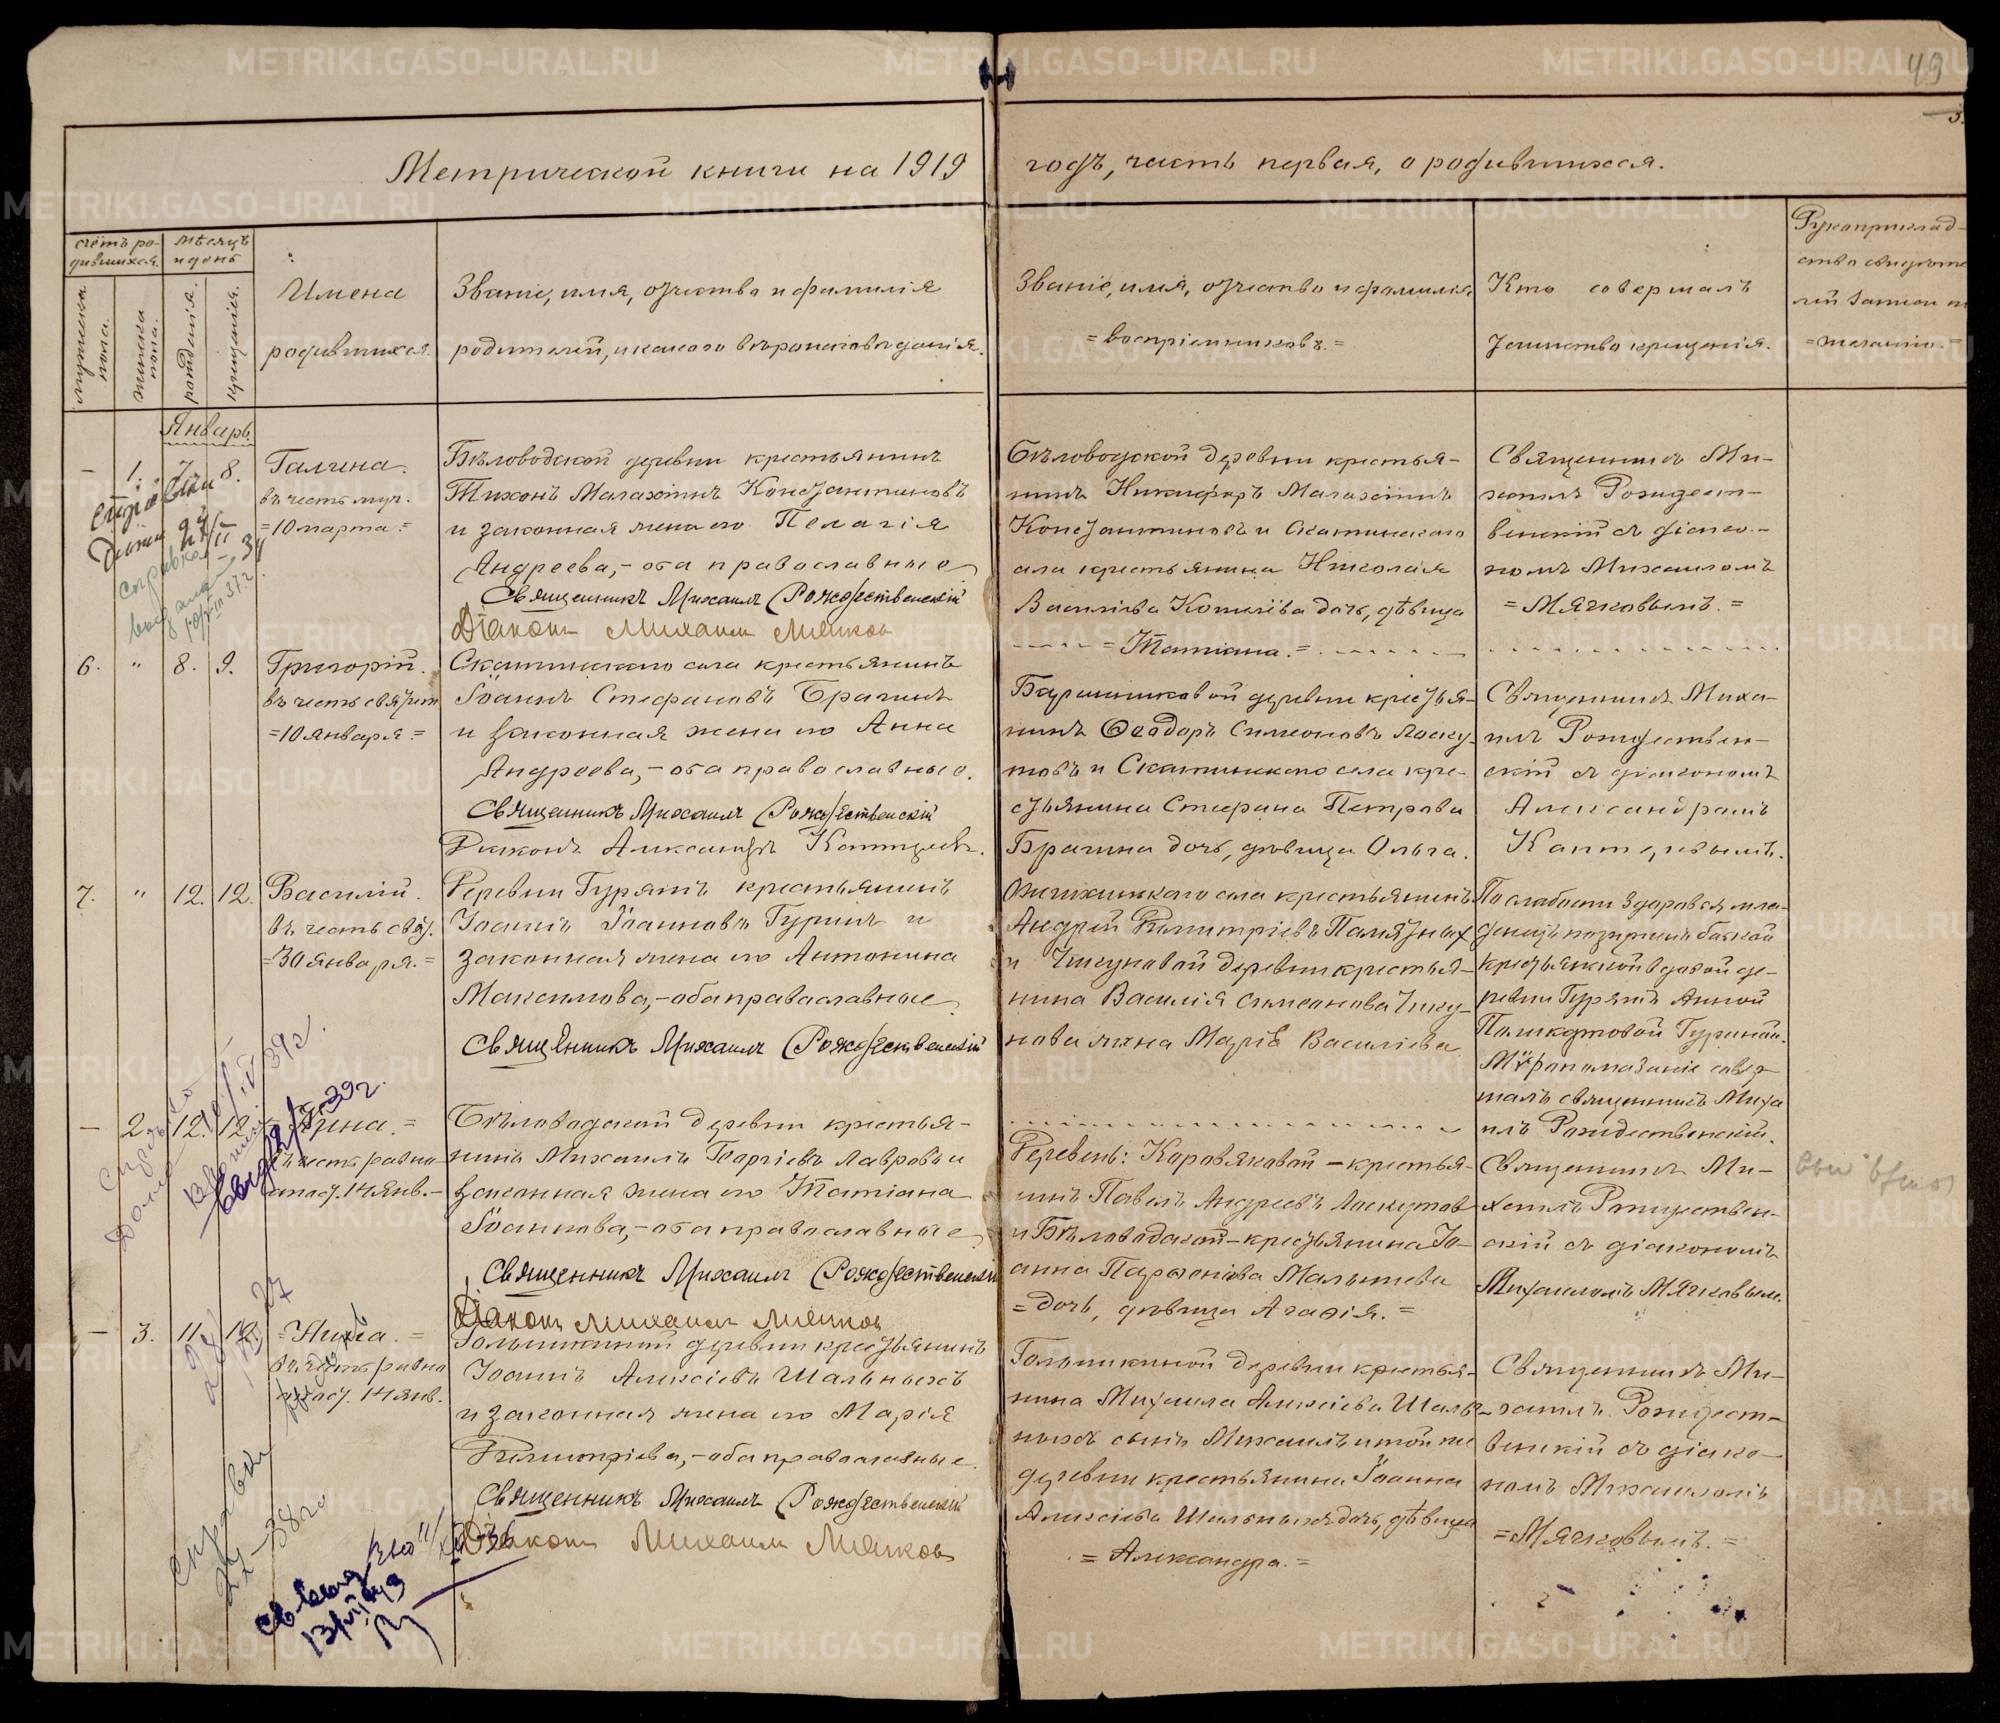 METRIKI.GASO-URAL.RU
49
3.
Метрической книги на 1919
годъ, часть первая, о родившихся.
счётъ ро-
дившихся.
мѣсяцъ
и день
мужеска
пола.
женска
пола.
рожденія.
крещенія.
Имена
родившихся.
Званіе, имя, отчество и фамилія
родителей, и какого вѣроисповѣданія.
Званіе, имя, отчество и фамилія
= воспріемниковъ. =
Кто совершалъ
таинство крещенія.
Рукоприклад-
ство свидѣте
лей записи п
= желанію. =
Январь.
– 1. 7. 8. Галина.
въ честь муч.
= 10 марта. =
Бѣловодской деревни крестьянинъ
Тихонъ Малахіинъ Константиновъ
и законная жена его Пелагія
Андреева, – оба православные
Священникъ Михаилъ Рождественскій
Діаконъ Михаилъ Мягков
Бѣловодской деревни крестья-
нинъ Никифоръ Малахіинъ
Константиновъ и Скатинскаго
села крестьянина Николая
Василіева Копылова дочь, дѣвица
= Татіана. =
Священникъ Ми-
хаилъ Рождест-
венскій съ діако-
номъ Михаиломъ
= Мягковымъ. =
справка
выдана
6. " 8. 9. Григорій.
въ честь святит
= 10 января =
Скатинскаго села крестьянинъ
Іоаннъ Стефановъ Брагинъ
и законная жена его Анна
Андреева, – оба православные.
Священникъ Михаилъ Рождественскій
Діаконъ Александръ Кантеревъ.
деревни кресть-
нинъ Ѳеодоръ Симеоновъ Лоску-
товъ и Скатинскаго села кре-
стьянина Стефана Петрова
Брагина дочь, дѣвица Ольга.
Священникъ Миха-
илъ Рождествен-
скій съ діакономъ
Александромъ
Кантеревымъ.
7. " 12. 12. Василій.
въ честь свят.
= 30 января. =
Деревни Гурятъ крестьянинъ
Іоаннъ Іоанновъ Гуринъ и
законная жена его Антонина
Максимова, – оба православные.
Священникъ Михаилъ Рождественскій
села крестьянинъ
Андрей Димитріевъ Памятных
и Чикуновой деревни крестья-
нина Василія Симеонова Чику-
нова жена Марія Василіева
По слабости здоровья мла-
денецъ погружёнъ бабкой
крестьянской вдовой де-
ревни Гурятъ Анной
Поликарповой Гуриной.
Мѵропомазаніе совер-
шалъ священникъ Миха
илъ Рождественскій.
– 2. 12. 12. Нина. =
въ честь равно
апост. 14 янв. –
Бѣловодской деревни крестья-
нинъ Михаилъ Георгіевъ Лавровъ и
законная жена его Татіана
Іоаннова, – оба православные
Священникъ Михаилъ Рождественскій
Діаконъ Михаилъ Мягков
Деревень: Коровяковой – крестья-
нинъ Павелъ Андреевъ Лоскутов
и Бѣловодской – крестьянина Іо-
анна Парѳенова Малышева
= дочь, дѣвица Агафія. =
Священникъ Ми-
хаилъ Рождествен-
скій съ діакономъ
Михаиломъ Мягковым.
– 3. 11. = Нина. =
въ честь равно
апост. 14 янв.
деревни крестьянинъ
Іоаннъ Алексіевъ Шальныхъ
и законная жена его Марія
Димитріева, – оба православные.
Священникъ Михаилъ Рождественскій
Діаконъ Михаилъ Мягковъ
деревни крестья-
нина Михаила Алексіева Шаль-
ныхъ сынъ Михаилъ и той же
деревни крестьянина Іоанна
Алексіева Шальныхъ дочь, дѣвица
= Александра. =
Священникъ Ми-
хаилъ Рождест-
венскій съ діако-
номъ Михаиломъ
= Мягковымъ. =